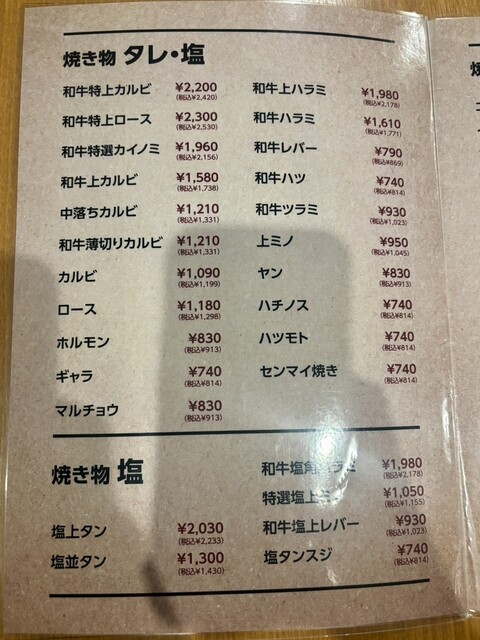 焼き物 タレ・塩
和牛特上カルビ ¥2,200 (税込¥2,420)
和牛特上ロース ¥2,300 (税込¥2,530)
和牛特選カイノミ ¥1,960 (税込¥2,156)
和牛上カルビ ¥1,580 (税込¥1,738)
中落ちカルビ ¥1,210 (税込¥1,331)
和牛薄切りカルビ ¥1,210 (税込¥1,331)
カルビ ¥1,090 (税込¥1,199)
ロース ¥1,180 (税込¥1,298)
ホルモン ¥830 (税込¥913)
ギャラ ¥740 (税込¥814)
マルチョウ ¥830 (税込¥913)
和牛上ハラミ ¥1,980 (税込¥2,178)
和牛ハラミ ¥1,610 (税込¥1,771)
和牛レバー ¥790 (税込¥869)
和牛ハツ ¥740 (税込¥814)
和牛ツラミ ¥930 (税込¥1,023)
上ミノ ¥950 (税込¥1,045)
ヤン ¥830 (税込¥913)
ハチノス ¥740 (税込¥814)
ハツモト ¥740 (税込¥814)
センマイ焼き ¥740 (税込¥814)
焼き物 塩
塩上タン ¥2,030 (税込¥2,233)
塩並タン ¥1,300 (税込¥1,430)
和牛塩 ¥1,980 (税込¥2,178)
特選塩上ミノ ¥1,050 (税込¥1,155)
和牛塩上レバー ¥930 (税込¥1,023)
塩タンスジ ¥740 (税込¥814)